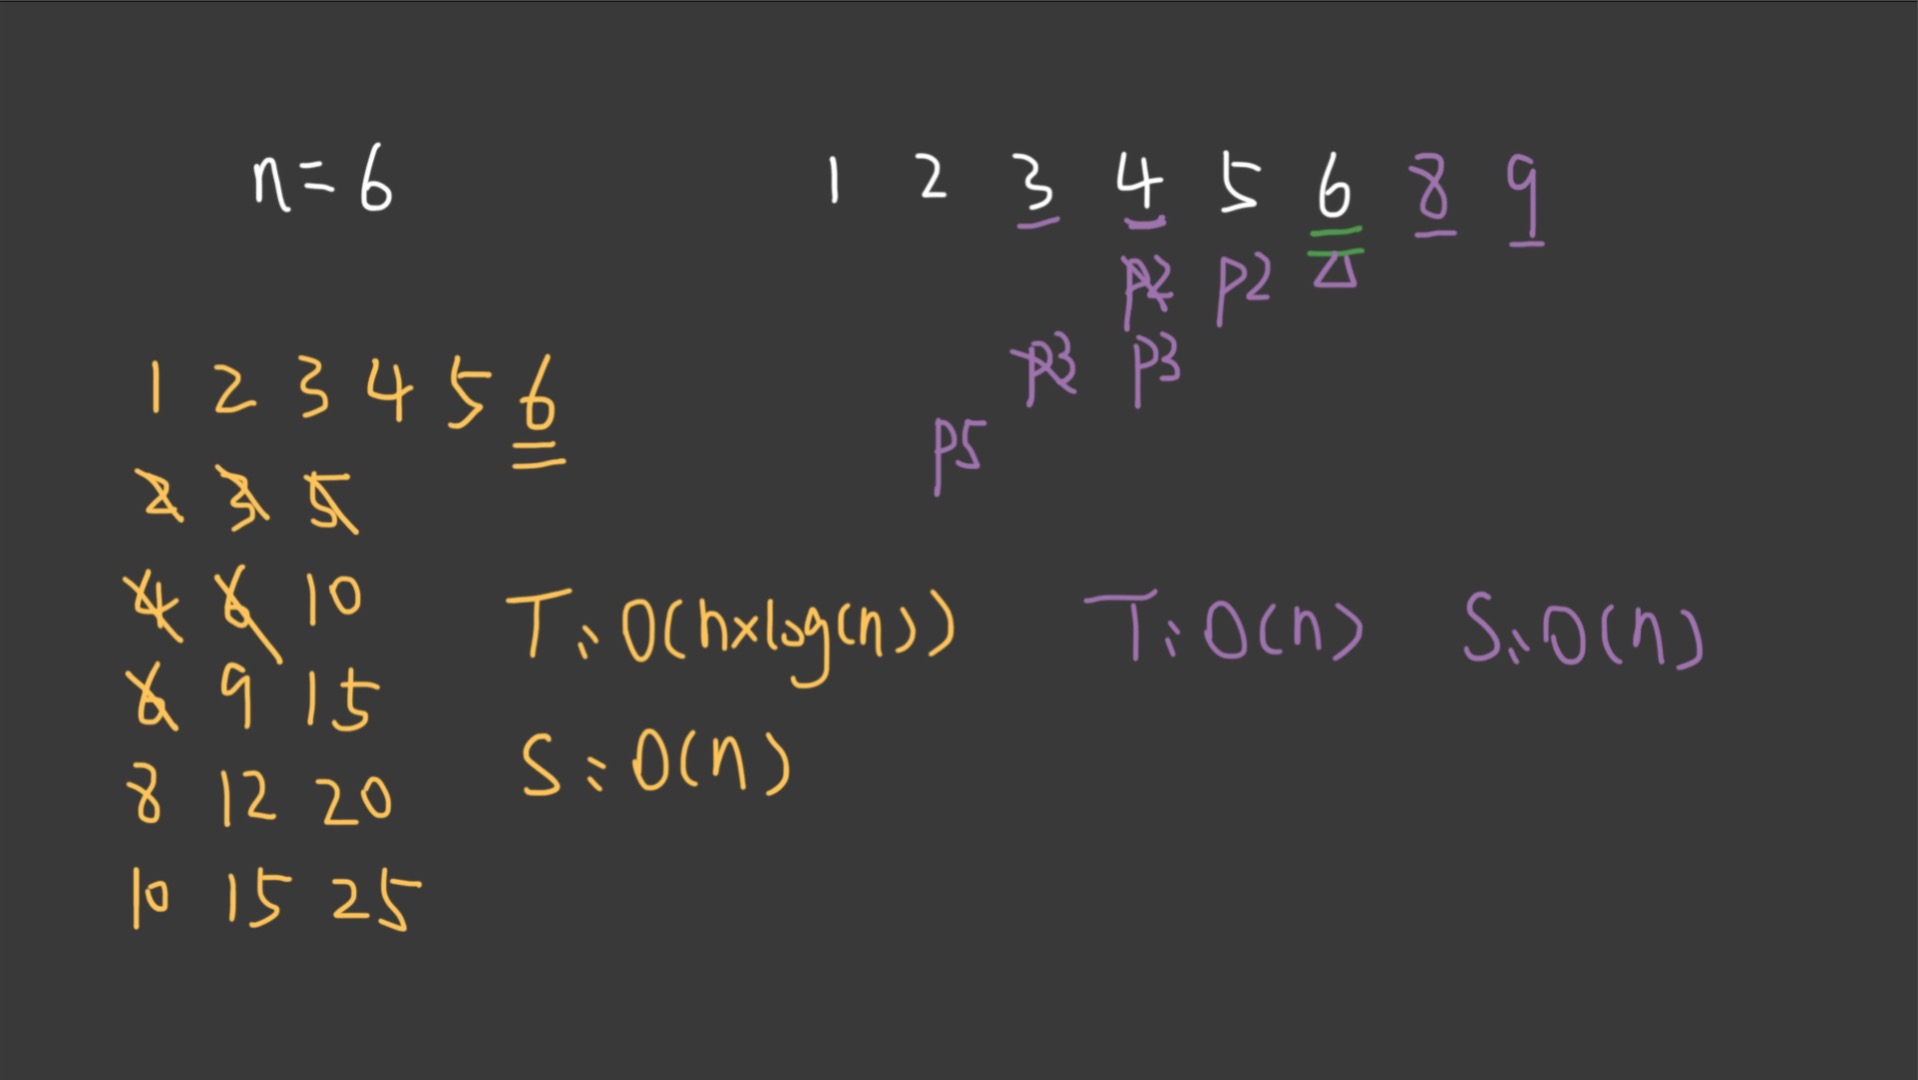 n = 6
1 2 3 4 5 6 8 9
p2 p2 Δ
p3 p3
p5
1 2 3 4 5 6
2 3 5
4 6 10
6 9 15
8 12 20
10 15 25
T: O(n×log(n))
S: O(n)
T: O(n) S: O(n)